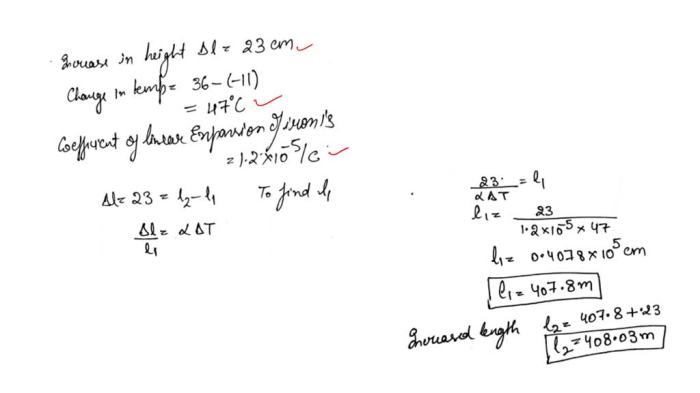 Increase in height Δl = 23 cm
Change in temp = 36 - (-11)
= 47°C
Coefficient of linear Expansion of iron is
= 1.2 × 10⁻⁵/C
Δl = 23 = l₂ - l₁ To find l₁
Δl/l₁ = α ΔT
23/αΔT = l₁
l₁ = 23/1.2 × 10⁻⁵ × 47
l₁ = 0.4078 × 10⁵ cm
l₁ = 407.8 m
Increased length l₂ = 407.8 + .23
l₂ = 408.03 m